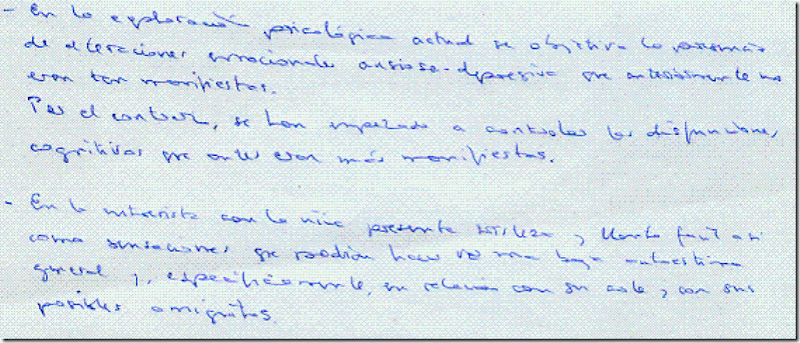 - En la exploración psicológica actual se objetiva la presencia
de alteraciones emocionales ansioso-depresivas que anteriormente no
eran tan manifiestas.
Por el contrario, se han empezado a controlar las disfunciones
cognitivas que antes eran más manifiestas.
- En la entrevista con la niña presenta tristeza y llanto fácil así
como sensaciones que podrían hacer ver una baja autoestima
general y, específicamente, en relación con su cole y con sus
posibles amiguitas.